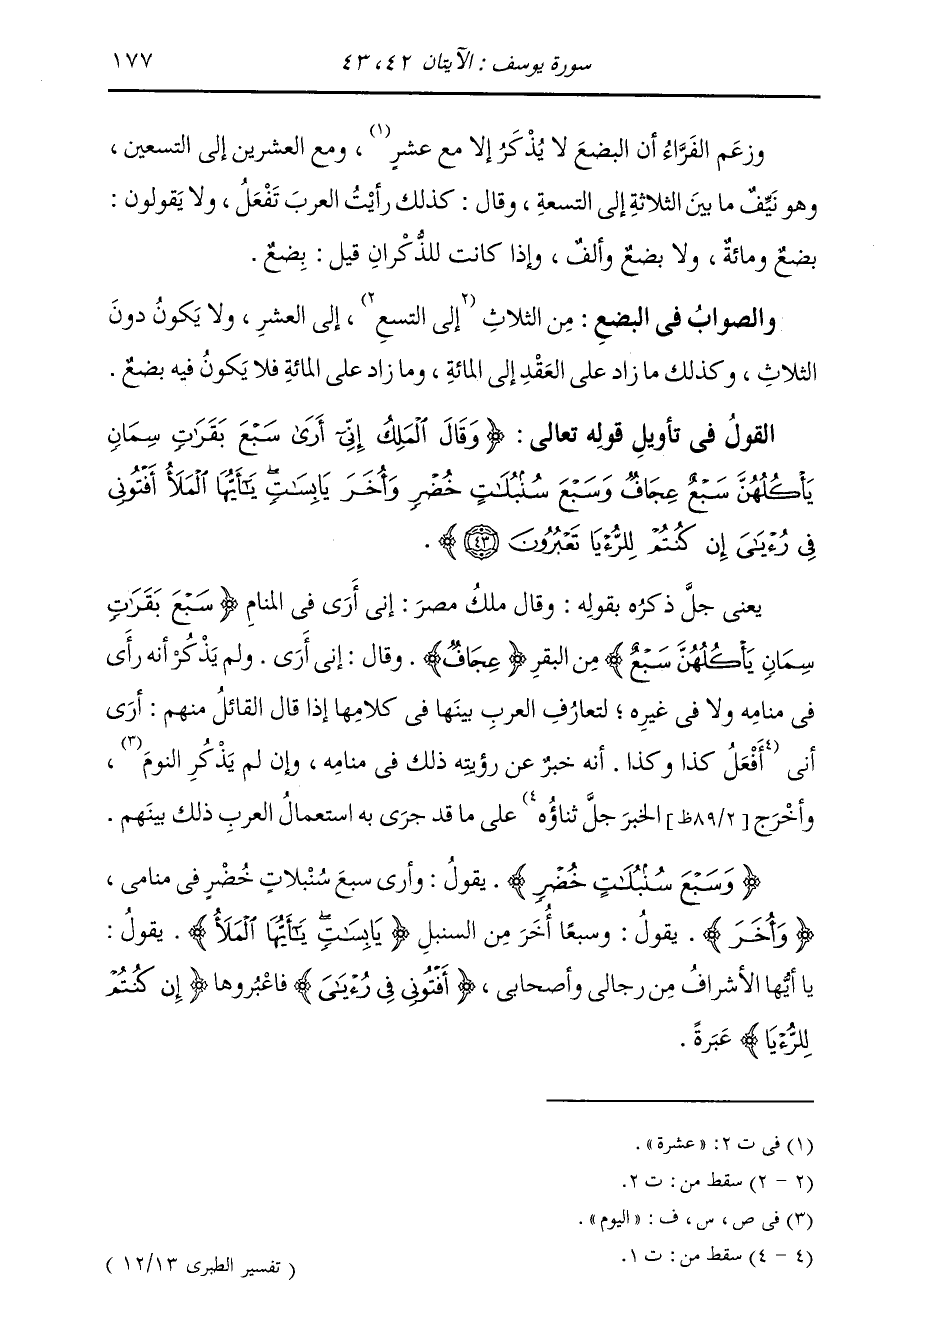 سورة يوسف : الآيتان ٤٢ ، ٤٣ ١٧٧
وزعَم الفَرَّاءُ أن البضعَ لا يُذْكَرُ إلا مع عشرٍ(١) ، ومع العشرين إلى التسعين ،
وهو نَيِّفٌ ما بينَ الثلاثةِ إلى التسعةِ ، وقال : كذلك رأيْتُ العربَ تَفْعَلُ ، ولا يَقولون :
بضعٌ ومائةٌ ، ولا بضعٌ وألفٌ ، وإذا كانت للذُّكْرانِ قيل : بِضعٌ .
والصوابُ فى البضعِ : مِن الثلاثِ (٢إلى التسعِ٢) ، إلى العشرِ ، ولا يَكونُ دونَ
الثلاثِ ، وكذلك ما زاد على العَقْدِ إلى المائةِ ، وما زاد على المائةِ فلا يَكونُ فيه بضعٌ .
القولُ فى تأويلِ قولِه تعالى : ﴿ وَقَالَ ٱلْمَلِكُ إِنِّىٓ أَرَىٰ سَبْعَ بَقَرَٰتٍ سِمَانٍ
يَأْكُلُهُنَّ سَبْعٌ عِجَافٌ وَسَبْعَ سُنۢبُلَٰتٍ خُضْرٍ وَأُخَرَ يَابِسَٰتٍ ۖ يَٰٓأَيُّهَا ٱلْمَلَأُ أَفْتُونِى
فِى رُءْيَٰىَ إِن كُنتُمْ لِلرُّءْيَا تَعْبُرُونَ ﴿٤٣﴾ ﴾ .
يعنى جلَّ ذكرُه بقولِه : وقال ملكُ مصرَ : إنى أَرَى فى المنامِ ﴿ سَبْعَ بَقَرَٰتٍ
سِمَانٍ يَأْكُلُهُنَّ سَبْعٌ ﴾ مِن البقرِ ﴿ عِجَافٌ ﴾ . وقال : إنى أَرَى . ولم يَذْكُرْ أنه رأَى
فى منامِه ولا فى غيرِه ؛ لتعارُفِ العربِ بينَها فى كلامِها إذا قال القائلُ منهم : أرَى
أنى (٤أَفْعَلُ كذا وكذا . أنه خبرٌ عن رؤيتِه ذلك فى منامِه ، وإن لم يَذْكُرِ النومَ(٣) ،
وأخْرَج [٨٩/٢ظ] الخبرَ جلَّ ثناؤُه٤) على ما قد جرَى به استعمالُ العربِ ذلك بينَهم .
﴿ وَسَبْعَ سُنۢبُلَٰتٍ خُضْرٍ ﴾ . يقولُ : وأرى سبعَ سُنْبلاتٍ خُضْرٍ فى منامى ،
﴿ وَأُخَرَ ﴾ . يقولُ : وسبعًا أُخَرَ مِن السنبلِ ﴿ يَابِسَٰتٍ ۖ يَٰٓأَيُّهَا ٱلْمَلَأُ ﴾ . يقولُ :
يا أيُّها الأشرافُ مِن رجالى وأصحابى ، ﴿ أَفْتُونِى فِى رُءْيَٰىَ ﴾ فاعْبُروها ﴿ إِن كُنتُمْ
لِلرُّءْيَا ﴾ عَبَرةً .
(١) فى ت ٢ : « عشرة » .
(٢ - ٢) سقط من : ت ٢ .
(٣) فى ص ، س ، ف : « اليوم » .
(٤ - ٤) سقط من : ت ١ .
( تفسير الطبرى ١٢/١٣ )